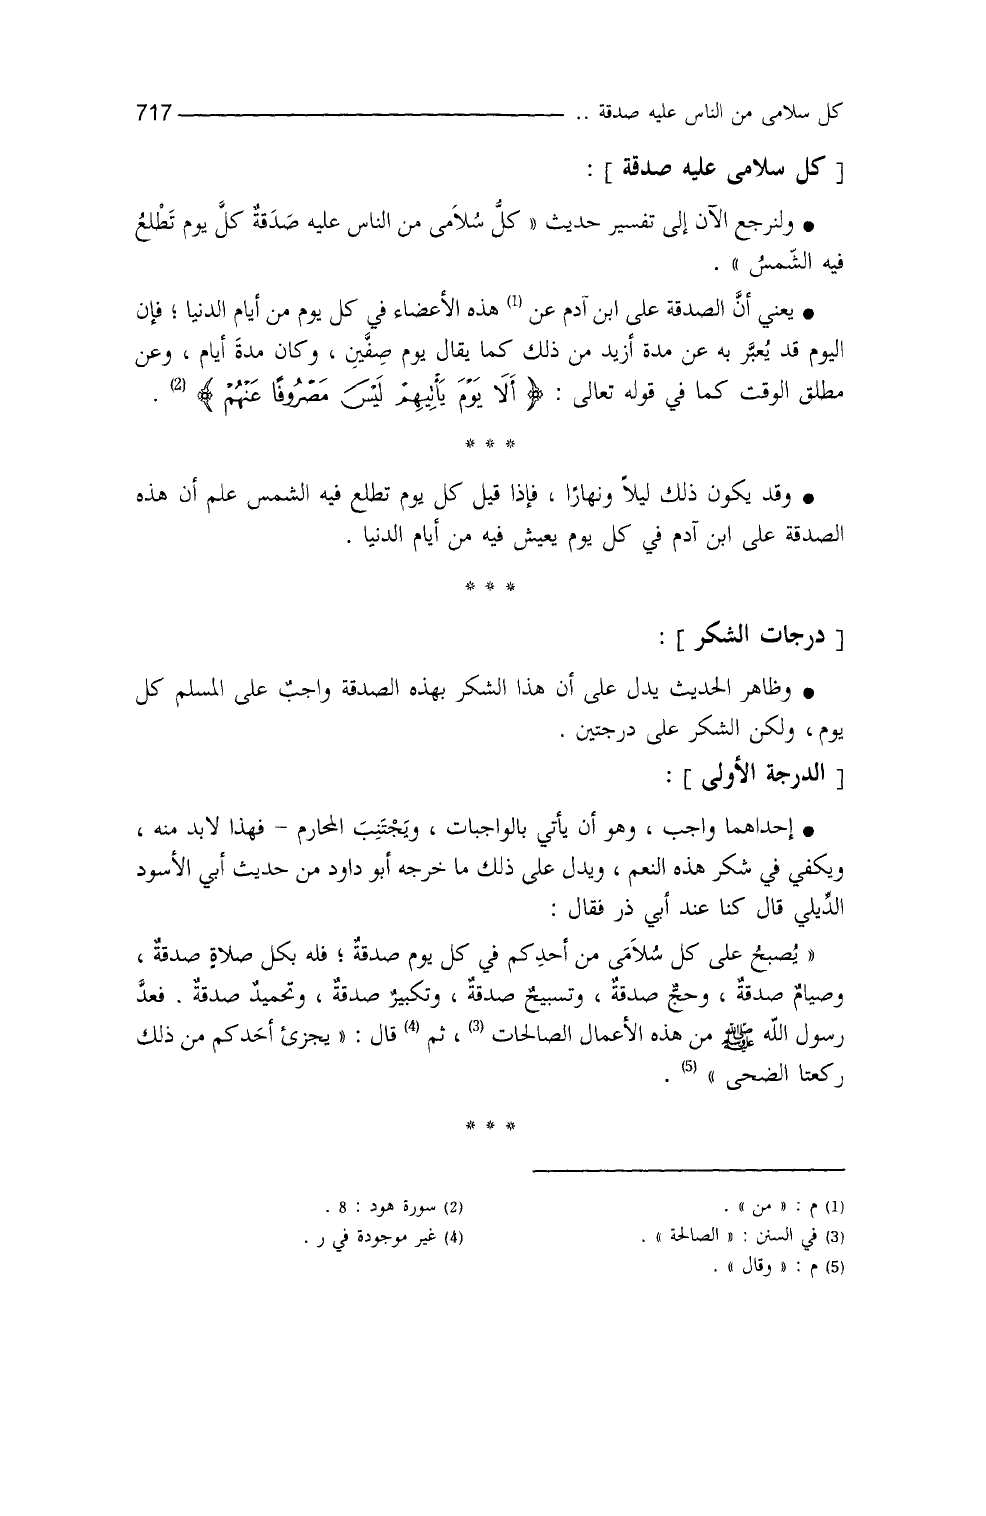 كل سلامى من الناس عليه صدقة .. 717
[ كل سلامى عليه صدقة ] :
● ولنرجع الآن إلى تفسير حديث « كلُّ سُلاَمى من الناس عليه صَدَقةٌ كلَّ يوم تَطْلعُ
فيه الشّمسُ » .
● يعني أنَّ الصدقة على ابن آدم عن (1) هذه الأعضاء في كل يوم من أيام الدنيا ؛ فإن
اليوم قد يُعبَّر به عن مدة أزيد من ذلك كما يقال يوم صِفَّينِ ، وكان مدةَ أيام ، وعن
مطلق الوقت كما في قوله تعالى : ﴿ أَلَا يَوْمَ يَأْتِيهِمْ لَيْسَ مَصْرُوفًا عَنْهُمْ ﴾ (2) .
* * *
● وقد يكون ذلك ليلاً ونهارًا ، فإذا قيل كل يوم تطلع فيه الشمس علم أن هذه
الصدقة على ابن آدم في كل يوم يعيش فيه من أيام الدنيا .
* * *
[ درجات الشكر ] :
● وظاهر الحديث يدل على أن هذا الشكر بهذه الصدقة واجبٌ على المسلم كل
يوم ، ولكن الشكر على درجتين .
[ الدرجة الأولى ] :
● إحداهما واجب ، وهو أن يأتي بالواجبات ، ويَجْتَنِبَ المحارم – فهذا لابد منه ،
ويكفي في شكر هذه النعم ، ويدل على ذلك ما خرجه أبو داود من حديث أبي الأسود
الدِّيلي قال كنا عند أبي ذر فقال :
« يُصبحُ على كل سُلاَمَى من أحدِكم في كل يوم صدقةٌ ؛ فله بكل صلاةٍ صدقةٌ ،
وصيامٌ صدقةٌ ، وحجٌّ صدقةٌ ، وتسبيحٌ صدقةٌ ، وتكبيرٌ صدقةٌ ، وتحميدٌ صدقةٌ . فعدَّ
رسول اللّه ﷺ من هذه الأعمال الصالحات (3) ، ثم (4) قال : « يجزئ أحَدكم من ذلك
ركعتا الضحى » (5) .
* * *
(1) م : « من » . (2) سورة هود : 8 .
(3) في السنن : « الصالحة » . (4) غير موجودة في ر .
(5) م : « وقال » .